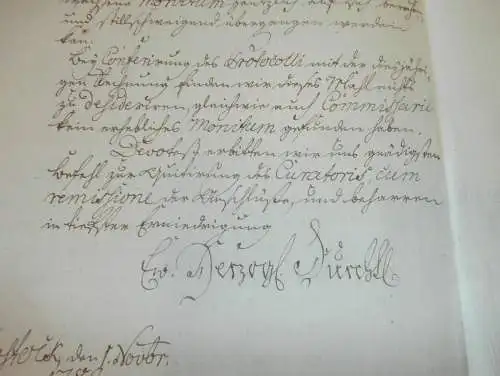 Monitum gäntzlich auf sich beruhen
und stillschweigend übergangen werden
kan.
Bey Conferirung des Protocolli mit der diesjähri
gen Rechnung finden wir dieses Mahl nichts
zu desideriren, gleichwie auch Commissarii
kein erhebliches Monitum gefunden haben.
Devotest erbitten wir uns gnädigsten
Befehl zur Quitirung des Curatoris cum
remissione der Anschlüße, und beharren
in tiefster Erniedrigung
Ew. Herzogl. Durchl.
den 1. Novbr.